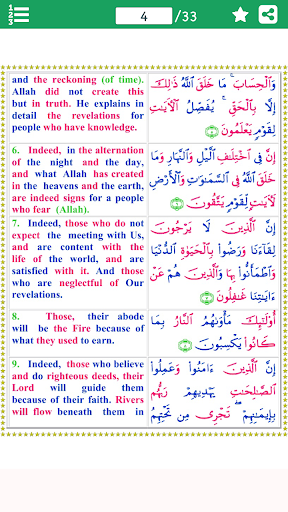 1
2
3
4 /33
and the reckoning (of time).
Allah did not create this
but in truth. He explains in
detail the revelations for
people who have knowledge.
وَٱلْحِسَابَ ۚ مَا خَلَقَ ٱللَّهُ ذَٰلِكَ
إِلَّا بِٱلْحَقِّ ۚ يُفَصِّلُ ٱلْءَايَٰتِ
لِقَوْمٍ يَعْلَمُونَ ٥
6. Indeed, in the alternation
of the night and the day,
and what Allah has created
in the heavens and the earth,
are indeed signs for a people
who fear (Allah).
إِنَّ فِى ٱخْتِلَٰفِ ٱلَّيْلِ وَٱلنَّهَارِ وَمَا
خَلَقَ ٱللَّهُ فِى ٱلسَّمَٰوَٰتِ وَٱلْأَرْضِ
لَءَايَٰتٍ لِّقَوْمٍ يَتَّقُونَ ٦
7. Indeed, those who do not
expect the meeting with Us,
and are content with the
life of the world, and are
satisfied with it. And those
who are neglectful of Our
revelations.
إِنَّ ٱلَّذِينَ لَا يَرْجُونَ
لِقَآءَنَا وَرَضُوا۟ بِٱلْحَيَوٰةِ ٱلدُّنْيَا
وَٱطْمَأَنُّوا۟ بِهَا وَٱلَّذِينَ هُمْ عَنْ
ءَايَٰتِنَا غَٰفِلُونَ ٧
8. Those, their abode
will be the Fire because of
what they used to earn.
أُو۟لَٰٓئِكَ مَأْوَىٰهُمُ ٱلنَّارُ بِمَا
كَانُوا۟ يَكْسِبُونَ ٨
9. Indeed, those who believe
and do righteous deeds, their
Lord will guide them
because of their faith. Rivers
will flow beneath them in
إِنَّ ٱلَّذِينَ ءَامَنُوا۟ وَعَمِلُوا۟
ٱلصَّٰلِحَٰتِ يَهْدِيهِمْ رَبُّهُم
بِإِيمَٰنِهِمْ ۖ تَجْرِى مِن تَحْتِهِمُ